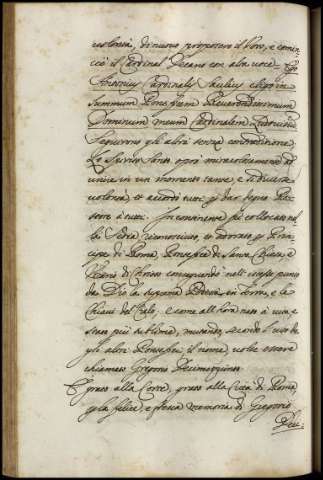 uolontà, di nuouo proposero il Voro, e comin
ciò il Cardinal Decano con alta uoce Ego
Antonius Cardinalis Saulius eligo in
summum Pontificem Reuerendissimum
Dominum meum Cardinalem Ludouisium
Seguirono gli altri senza contradizione,
Lo Spirito Santo operò miracolosamente ad
unire in un momento tante, e sì diuerse
uolontà, et accordi tutti p dar degno Pas
tore à tutti. Incontinente fù collocato nel
la Sedia riconosciuto, et adorato p Prin
cipe di Roma, Pontefice di Santa Chiesa, e
Vicario di Christo conseguendo nell' istesso punto
da Dio la suprema Potestà in Terra, e le
Chiaui del Cielo; e come all' hora nato à una, e
stato più sublime, mutando, secondo l'uso de
gli altri Pontefici, il nome, uolse essere
chiamato Gregorio Decimoquinto.
È grato alla Corte, grato alla Città di Roma,
p la felice, e fresca memoria di Gregorio
Deci-